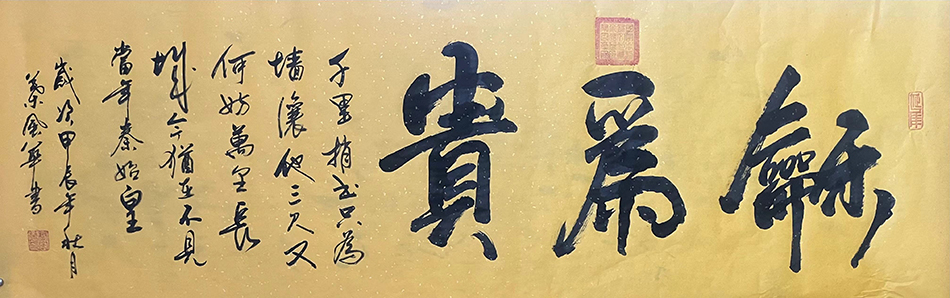 龢爲貴
千里捎书只為
墙讓他三尺又
何妨萬里長
城今猶在不見
當年秦始皇
歲次甲辰年秋月
風華書